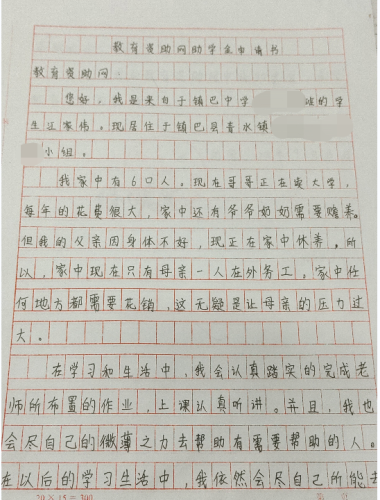 教育资助网助学金申请书
教育资助网
您好,我是来自于镇巴中学 班的学
生江家伟。现居住于镇巴县青水镇
小组。
我家中有6口人。现在哥哥正在读大学,
每年的花费很大,家中还有爷爷奶奶需要赡养。
但我的父亲因身体不好,现正在家中休养。所
以,家中现在只有母亲一人在外务工。家中任
何地方都需要花销,这无疑是让母亲的压力过
大。
在学习和生活中,我会认真踏实的完成老
师所布置的作业,上课认真听讲。并且,我也
会尽自己的微薄之力去帮助有需要帮助的人。
在以后的学习生活中,我依然会尽自己所能去
20×15=300 第 页